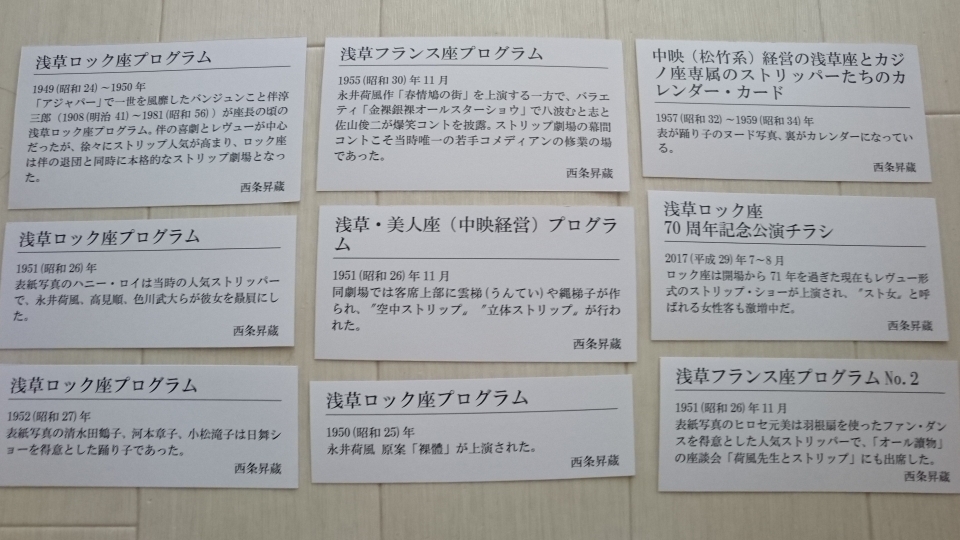 浅草ロック座プログラム
1949(昭和24)～1950年
「アジャパー」で一世を風靡したバンジュンこと伴淳
三郎(1908(明治41)～1981(昭和56))が座長の頃の
浅草ロック座プログラム。伴の喜劇とレヴューが中心
だったが、徐々にストリップ人気が高まり、ロック座
は伴の退団と同時に本格的なストリップ劇場となっ
た。
西条昇蔵
浅草ロック座プログラム
1951(昭和26)年
表紙写真のハニー・ロイは当時の人気ストリッパー
で、永井荷風、高見順、色川武大らが彼女を贔屓にし
た。
西条昇蔵
浅草ロック座プログラム
1952(昭和27)年
表紙写真の清水田鶴子、河本章子、小松滝子は日舞シ
ョーを得意とした踊り子であった。
西条昇蔵
浅草フランス座プログラム
1955(昭和30)年11月
永井荷風作「春情鳩の街」を上演する一方で、バラエ
ティ「金裸銀裸オールスターショウ」で八波むと志と
佐山俊二が爆笑コントを披露。ストリップ劇場の幕間
コントこそ当時唯一の若手コメディアンの修業の場
であった。
西条昇蔵
浅草・美人座（中映経営）プログラ
ム
1951(昭和26)年11月
同劇場では客席上部に雲梯(うんてい)や縄梯子が作
られ、〝空中ストリップ〟〝立体ストリップ〟が行わ
れた。
西条昇蔵
浅草ロック座プログラム
1950(昭和25)年
永井荷風 原案「裸體」が上演された。
西条昇蔵
中映（松竹系）経営の浅草座とカジ
ノ座専属のストリッパーたちのカ
レンダー・カード
1957(昭和32)～1959(昭和34)年
表が踊り子のヌード写真、裏がカレンダーになってい
る。
西条昇蔵
浅草ロック座
70周年記念公演チラシ
2017(平成29)年7～8月
ロック座は開場から71年を過ぎた現在もレヴュー形
式のストリップ・ショーが上演され、〝スト女〟と呼
ばれる女性客も激増中だ。
西条昇蔵
浅草フランス座プログラムNo.2
1951(昭和26)年11月
表紙写真のヒロセ元美は羽根扇を使ったファン・ダン
スを得意とした人気ストリッパーで、「オール讀物」
の座談会「荷風先生とストリップ」にも出席した。
西条昇蔵